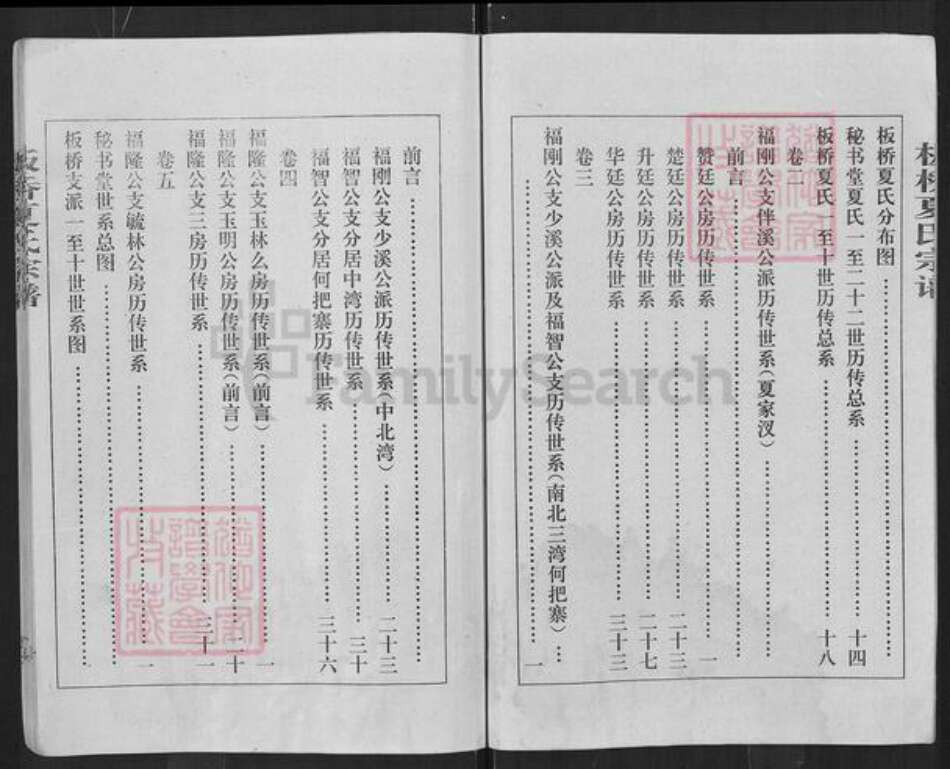 板桥夏氏宗谱
板桥夏氏分布图……
秘书堂夏氏一至二十二世历传总系……十四
板桥夏氏一至十世历传总系……十八
卷二
福刚公支伴溪公派历传世系(夏家汊)……
前言……一
赞廷公房历传世系……
楚廷公房历传世系……二十三
升廷公房历传世系……二十七
华廷公房历传世系……三十三
卷三
福刚公支少溪公派及福智公支历传世系(南北三湾何把寨)…
……一
前言……
福刚公支少溪公派历传世系(中北湾)……二十三
福智公支分居中湾历传世系……三十
福智公支分居何把寨历传世系……三十六
卷四
福隆公支玉林么房历传世系(前言)……一
福隆公支玉明公房历传世系(前言)……二十
福隆公支三房历传世系……三十一
卷五
福隆公支毓林公房历传世系……一
秘书堂世系总图……
板桥支派一至十世世系图……
板桥夏氏宗谱
FamilySearch